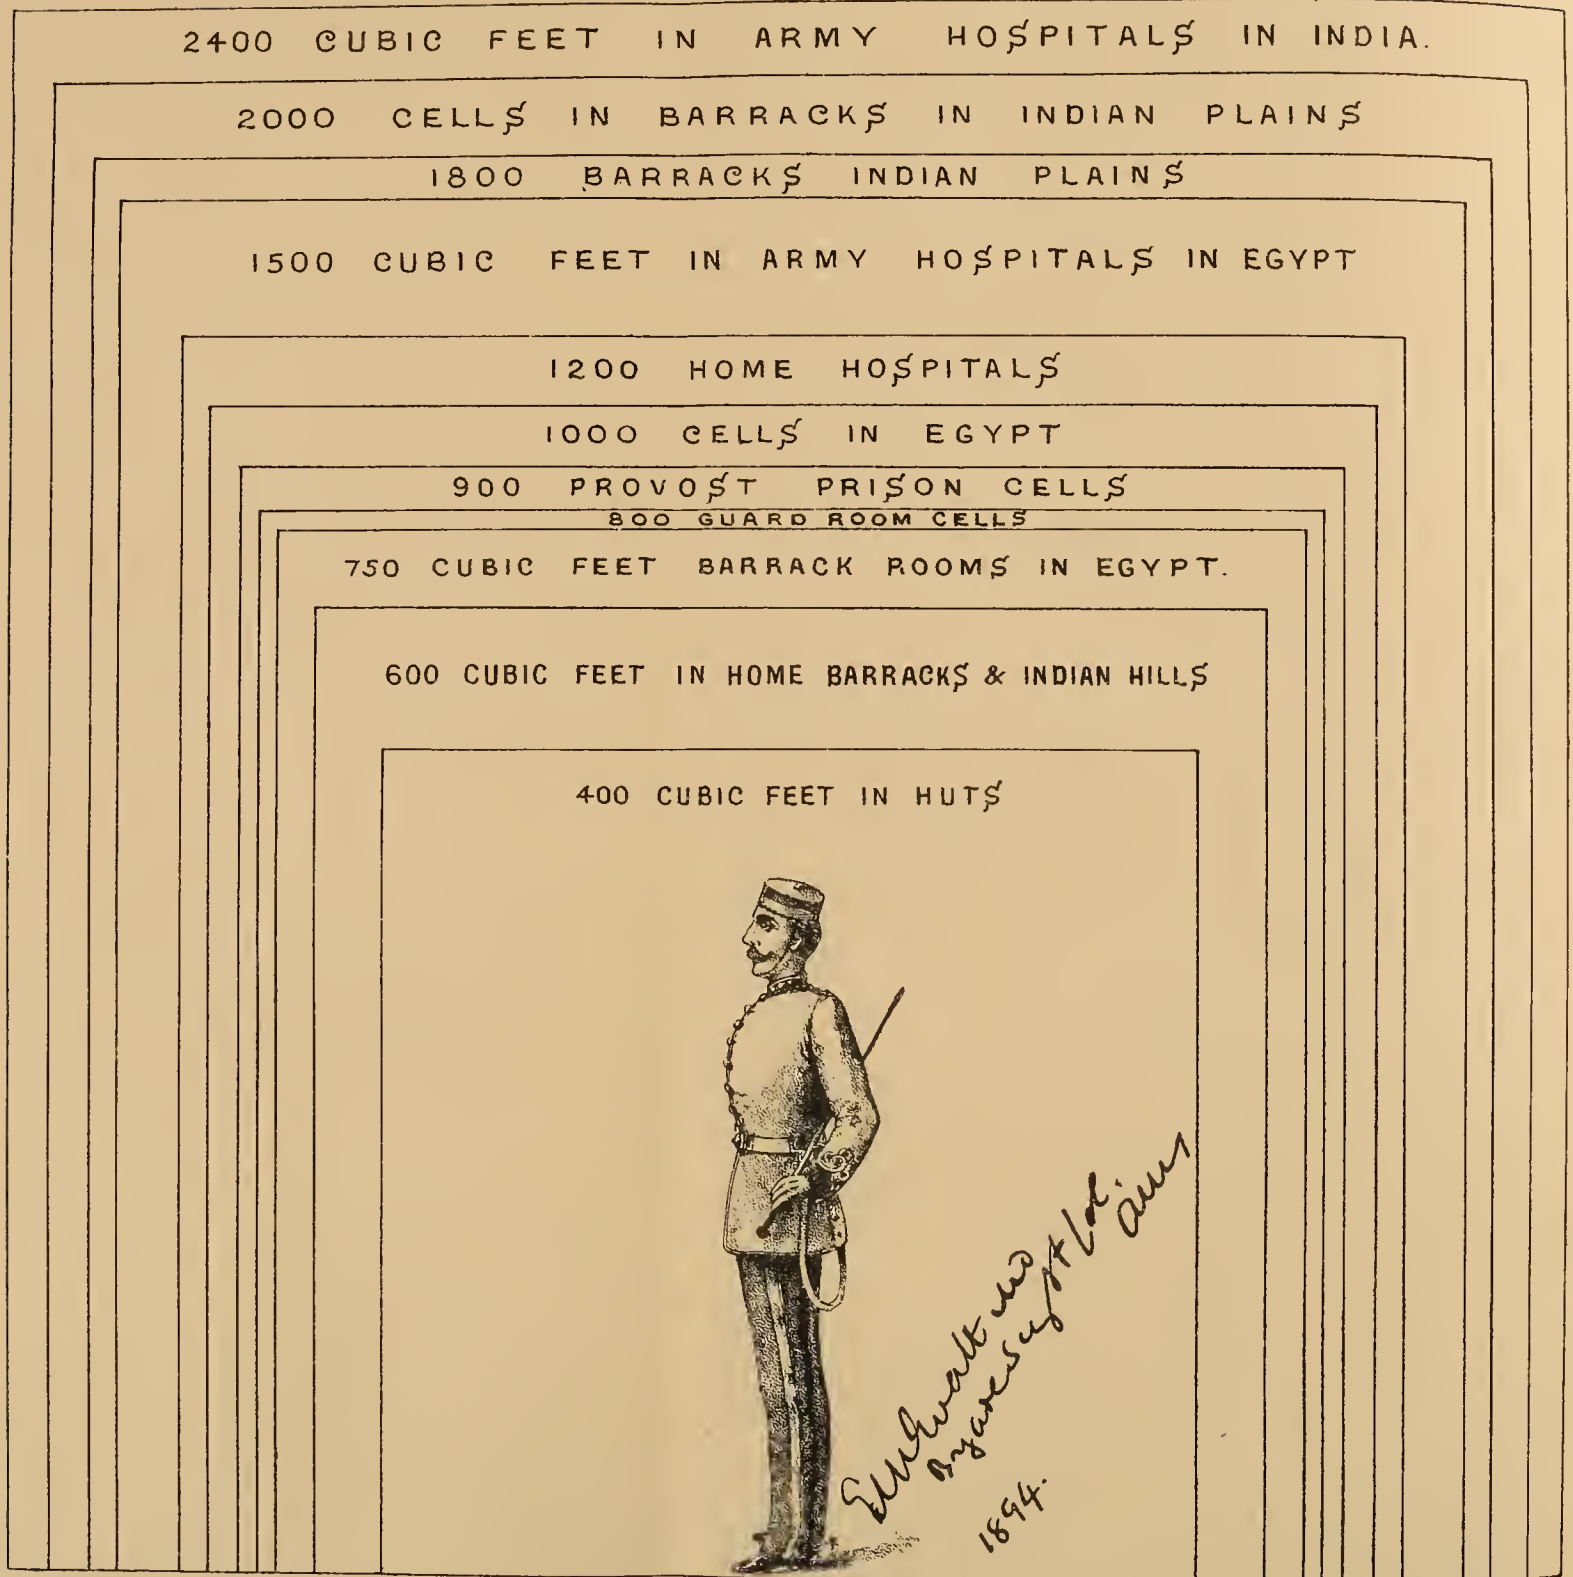 2400 CUBIC FEET IN ARMY HOSPITALS IN INDIA.
2000 CELLS IN BARRACKS IN INDIAN PLAINS
1800 BARRACKS INDIAN PLAINS
1500 CUBIC FEET IN ARMY HOSPITALS IN EGYPT
1200 HOME HOSPITALS
1000 CELLS IN EGYPT
900 PROVOST PRISON CELLS
800 GUARD ROOM CELLS
750 CUBIC FEET BARRACK ROOMS IN EGYPT.
600 CUBIC FEET IN HOME BARRACKS & INDIAN HILLS
400 CUBIC FEET IN HUTS
1894.